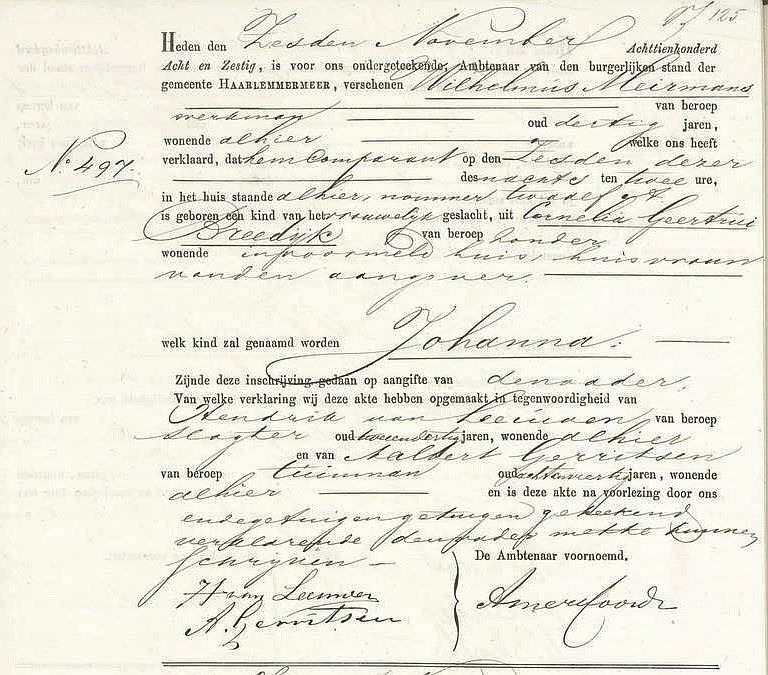 125
Heden den Zesden November Achttienhonderd
Acht en Zestig, is voor ons ondergeteekende, Ambtenaar van den burgerlijken stand der
gemeente HAARLEMMERMEER, verschenen Wilhelmus Meirmans
van beroep
werkman oud dertig jaren,
wonende alhier welke ons heeft
No. 497.
verklaard, dat hem Comparant op den Zesden dezer
des nachts ten twee ure,
in het huis staande alhier, nommer twaalf
is geboren een kind van het vrouwelyk geslacht, uit Cornelia Geertrui
Breedijk van beroep zonder
wonende in voormeld huis, huisvrouw
van den aangever.
welk kind zal genaamd worden Johanna.
Zijnde deze inschrijving gedaan op aangifte van den vader.
Van welke verklaring wij deze akte hebben opgemaakt in tegenwoordigheid van
Hendrik van Leeuwen van beroep
slagter oud tweeendertig jaren, wonende alhier
en van Aaldert Gerritsen
van beroep tuinman oud achtenveertig jaren, wonende
alhier en is deze akte na voorlezing door ons
en de getuigen geteekend
verklarende den vader niet te kunnen
schryven
De Ambtenaar voornoemd.
H van Leeuwen
A. Gerritsen
Amersfoordt